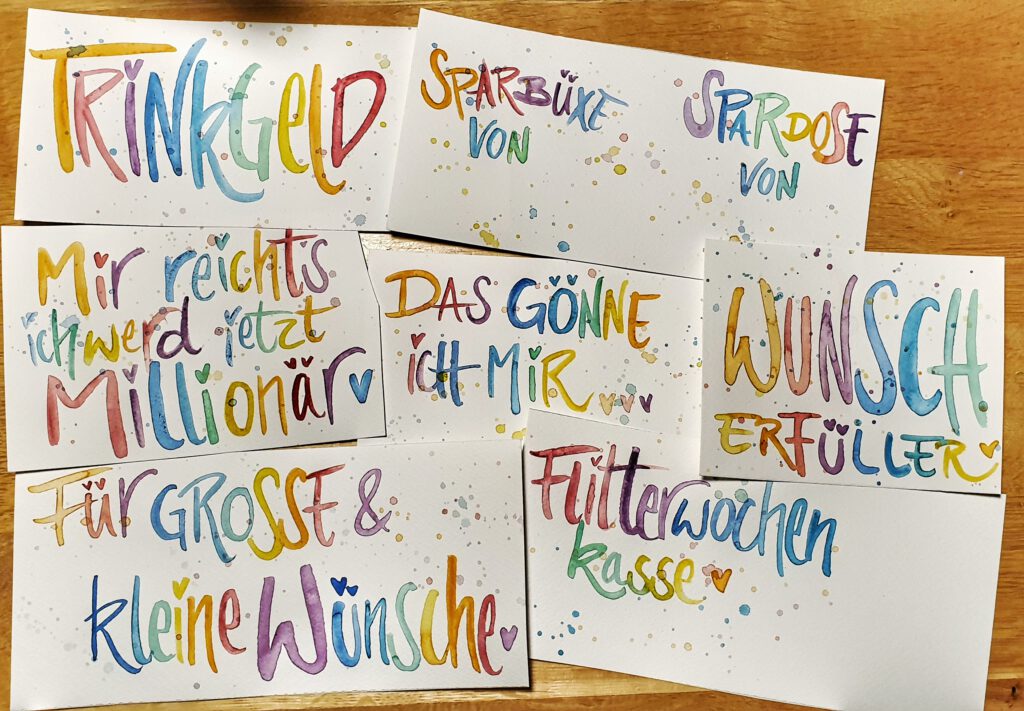 TRiNkGelD
SPARBÜXE
VON
SPARDOSE
VON
Mir reichts
ich werd jetzt
Millionär
DAS GÖNNE
icH MiR
WUNSCH
ERFÜLLER
Für GROSSE &
kleine Wünsche
Flitterwochen
kasse